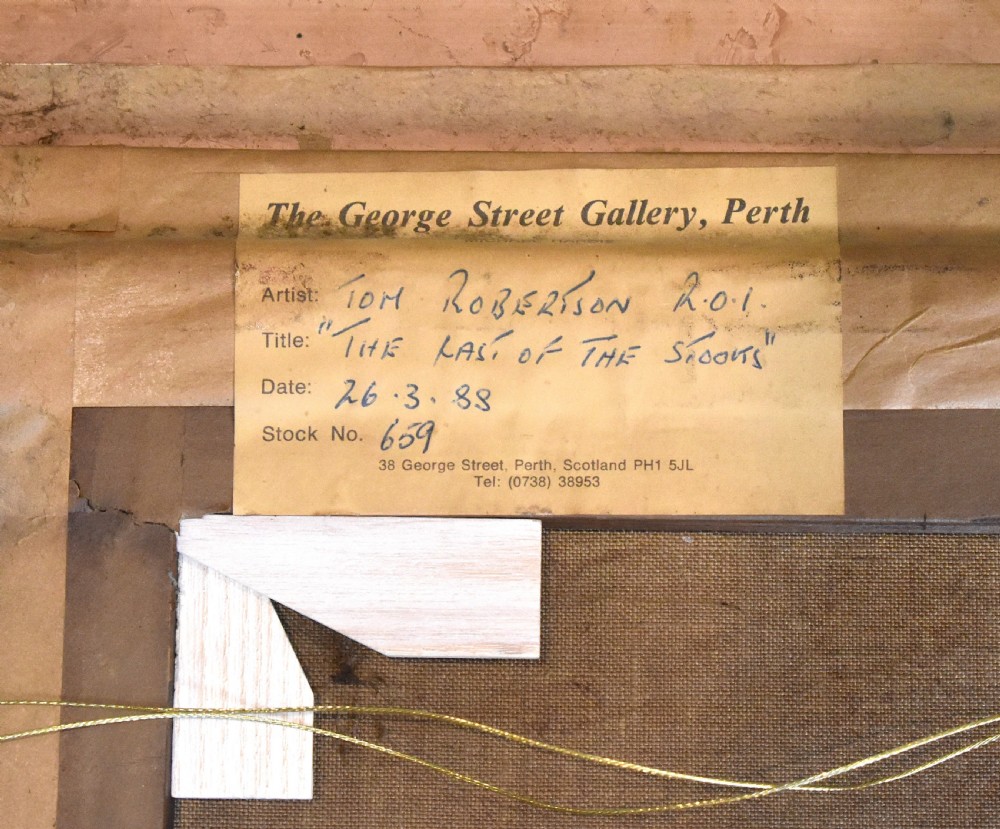 The George Street Gallery, Perth
Artist: TOM ROBERTSON R.O.I.
Title: "THE LAST OF THE STOOKS"
Date: 26.3.88
Stock No. 659
38 George Street, Perth, Scotland PH1 5JL
Tel: (0738) 38953